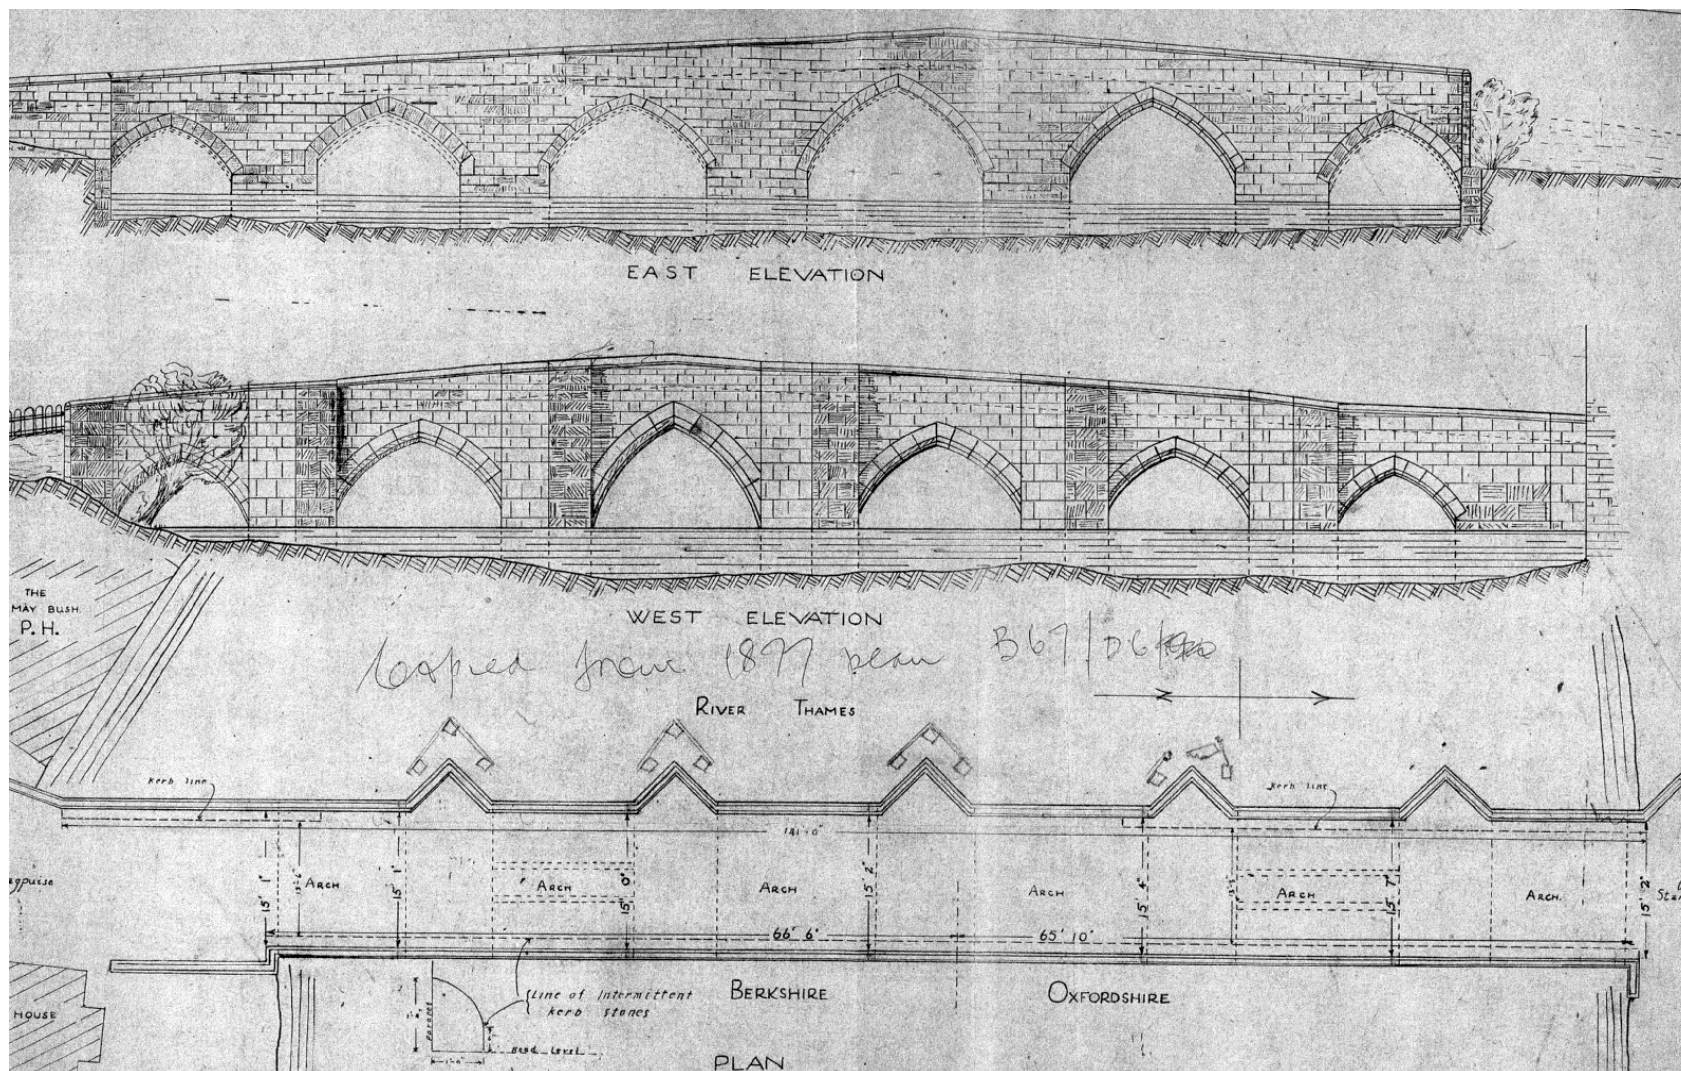 EAST ELEVATION
WEST ELEVATION
THE
MAY BUSH.
P. H.
Copied from 1897 plan B67/D6
RIVER THAMES
Kerb line
Kerb line
141' 0"
15' 1"
ARCH
15' 1"
ARCH
15' 0"
ARCH
15' 2"
ARCH
15' 4"
ARCH
15' 7"
ARCH.
15' 2"
66' 6"
65' 10"
Line of Intermittent
kerb stones
BERKSHIRE
OXFORDSHIRE
HOUSE
PARAPET
Road Level
PLAN